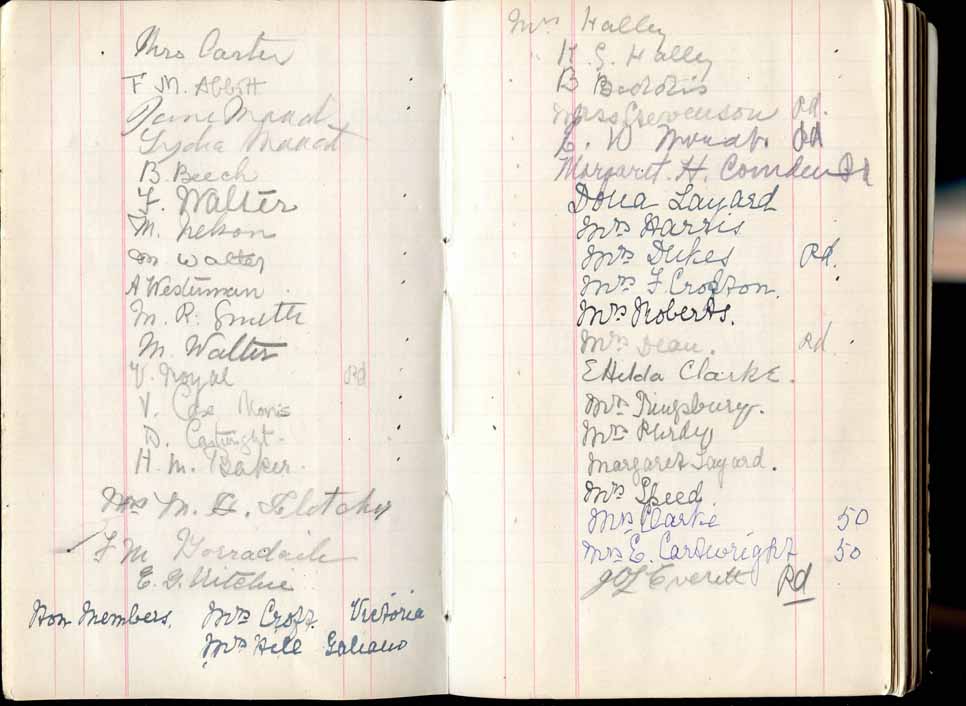 Mrs Carter
F M. Abbott
Lydia
B. Beech
F. Walter
M. Nelson
M Walter
A Westerman
M. R. Smith
M. Walter
V. Royal Rd
V. Case Morris
D. Cartwright.
H. M. Baker.
Mrs M. G. Fletcher
F M Borradaile
E. G. Ritchie
Hon Members. Mrs Croft. Victoria
Mrs Hill Galiano
Mrs Halley
H. G. Halley
B
Miss Stevenson Rd.
E. W Rd
Margaret. H. Rd
Dona Layard
Mrs Harris
Mrs Dukes Rd.
Mrs F Crofton.
Mrs Roberts.
Mrs Dean. Rd
E Hilda Clarke.
Mrs Kingsbury.
Mrs Purdy
Margaret Layard.
Mrs Speed
Mrs Clarke 50
Mrs E. Cartwright 50
Everett Rd